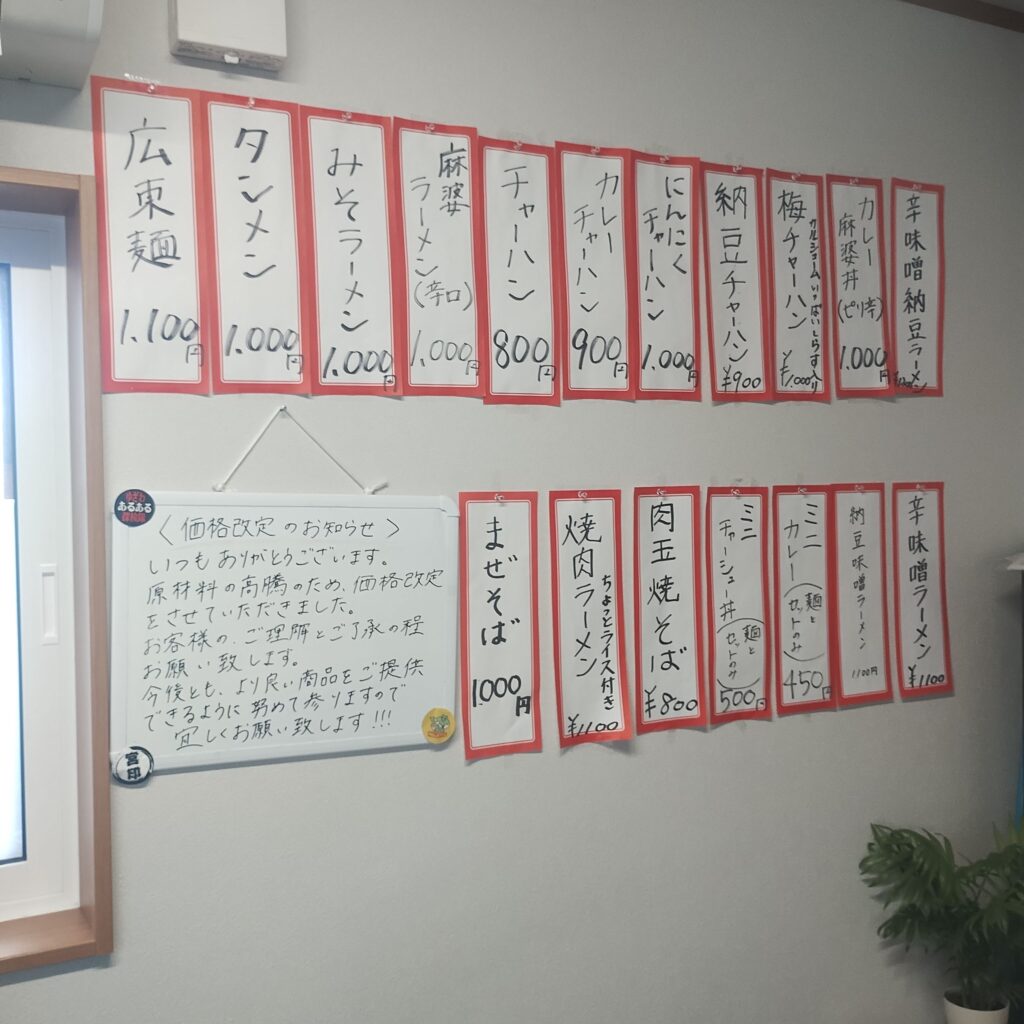 広東麺
1.100円
タンメン
1.000円
みそラーメン
1.000円
麻婆
ラーメン(辛口)
1,000円
チャーハン
800円
カレー
チャーハン
900円
にんにく
チャーハン
1.000円
納豆チャーハン
¥900
梅チャーハン
カルシュームいっぱいしらす入り
¥1,000
カレー
麻婆丼
(ピリ辛)
1.000円
辛味噌納豆ラーメン
〈価格改定のお知らせ〉
いつもありがとうございます。
原材料の高騰のため、価格改定
をさせていただきました。
お客様の、ご理解とご了承の程
お願い致します。
今後とも、より良い商品をご提供
できるように努めて参りますので
宜しくお願い致します!!!
あるある
宮印
まぜそば
1000円
焼肉ラーメン
ちょっとライス付き
¥1,100
肉玉焼そば
¥800
ミニ
チャーシュー丼
(麺と
セットのみ)
500円
ミニ
カレー
(麺と
セットのみ)
450円
納豆味噌ラーメン
1100円
辛味噌ラーメン
¥1100